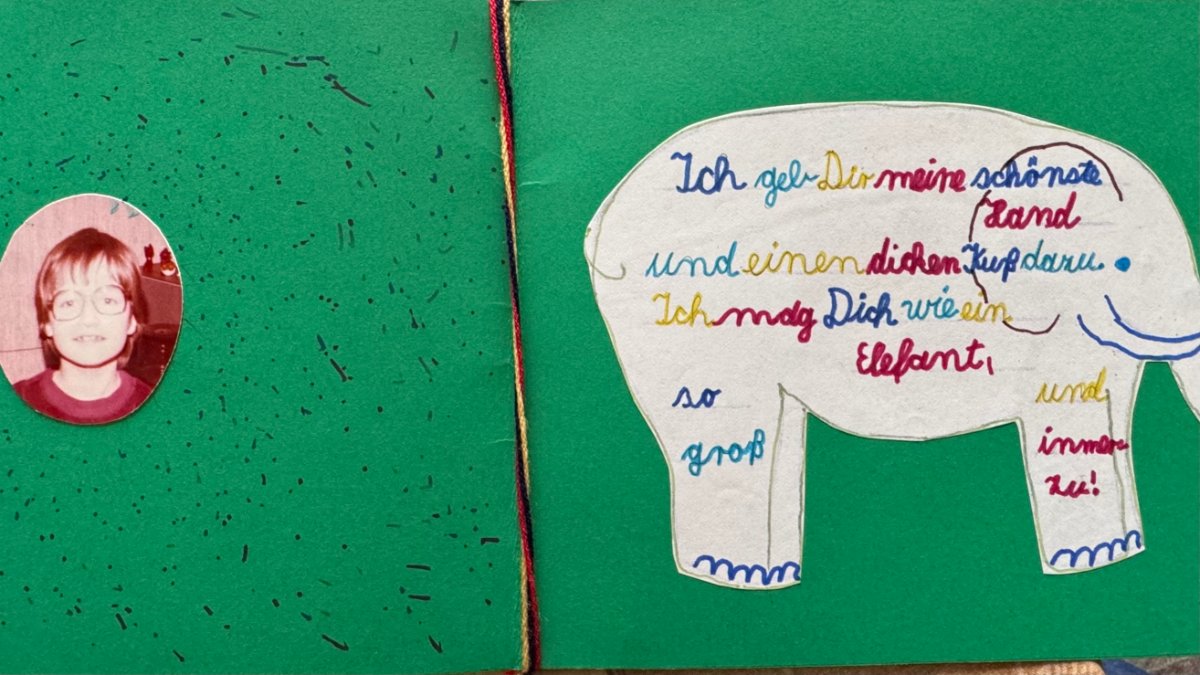 Ich geb Dir meine schönste
Hand
und einen dicken Kuß dazu.
Ich mag Dich wie ein
Elefant,
so
groß
und
immer
zu!